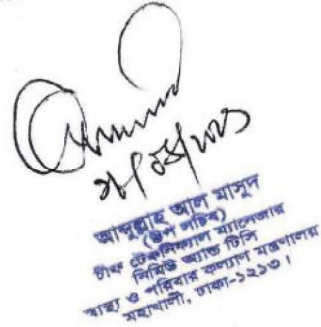 আব্দুল্লাহ আল মাসুদ
(উপ সচিব)
চীফ টেকনিক্যাল ম্যানেজার
নিমিউ অ্যান্ড টিসি
স্বাস্থ্য ও পরিবার কল্যাণ মন্ত্রণালয়
মহাখালী, ঢাকা-১২১৩।